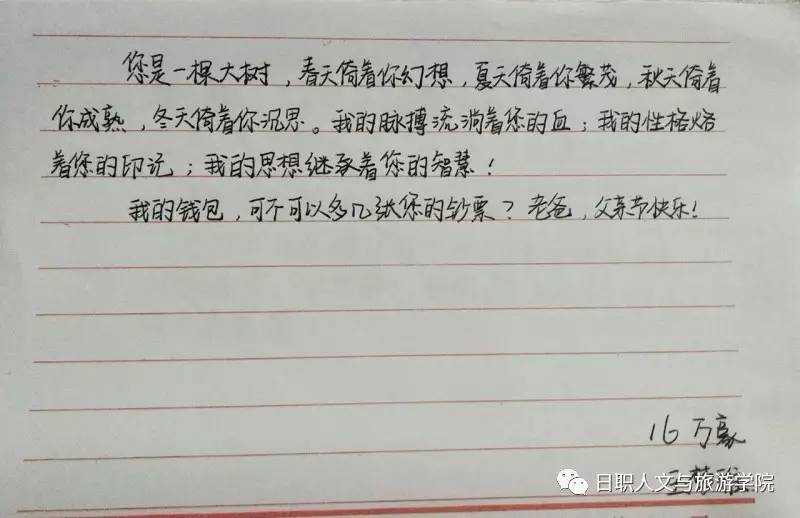 您是一棵大树，春天倚着你幻想，夏天倚着你繁茂，秋天倚着
你成熟，冬天倚着你沉思。我的脉搏流淌着您的血；我的性格烙
着您的印记；我的思想继承着您的智慧！
我的钱包，可不可以多几张您的钞票？老爸，父亲节快乐！
16万豪
王梦
日职人文与旅游学院